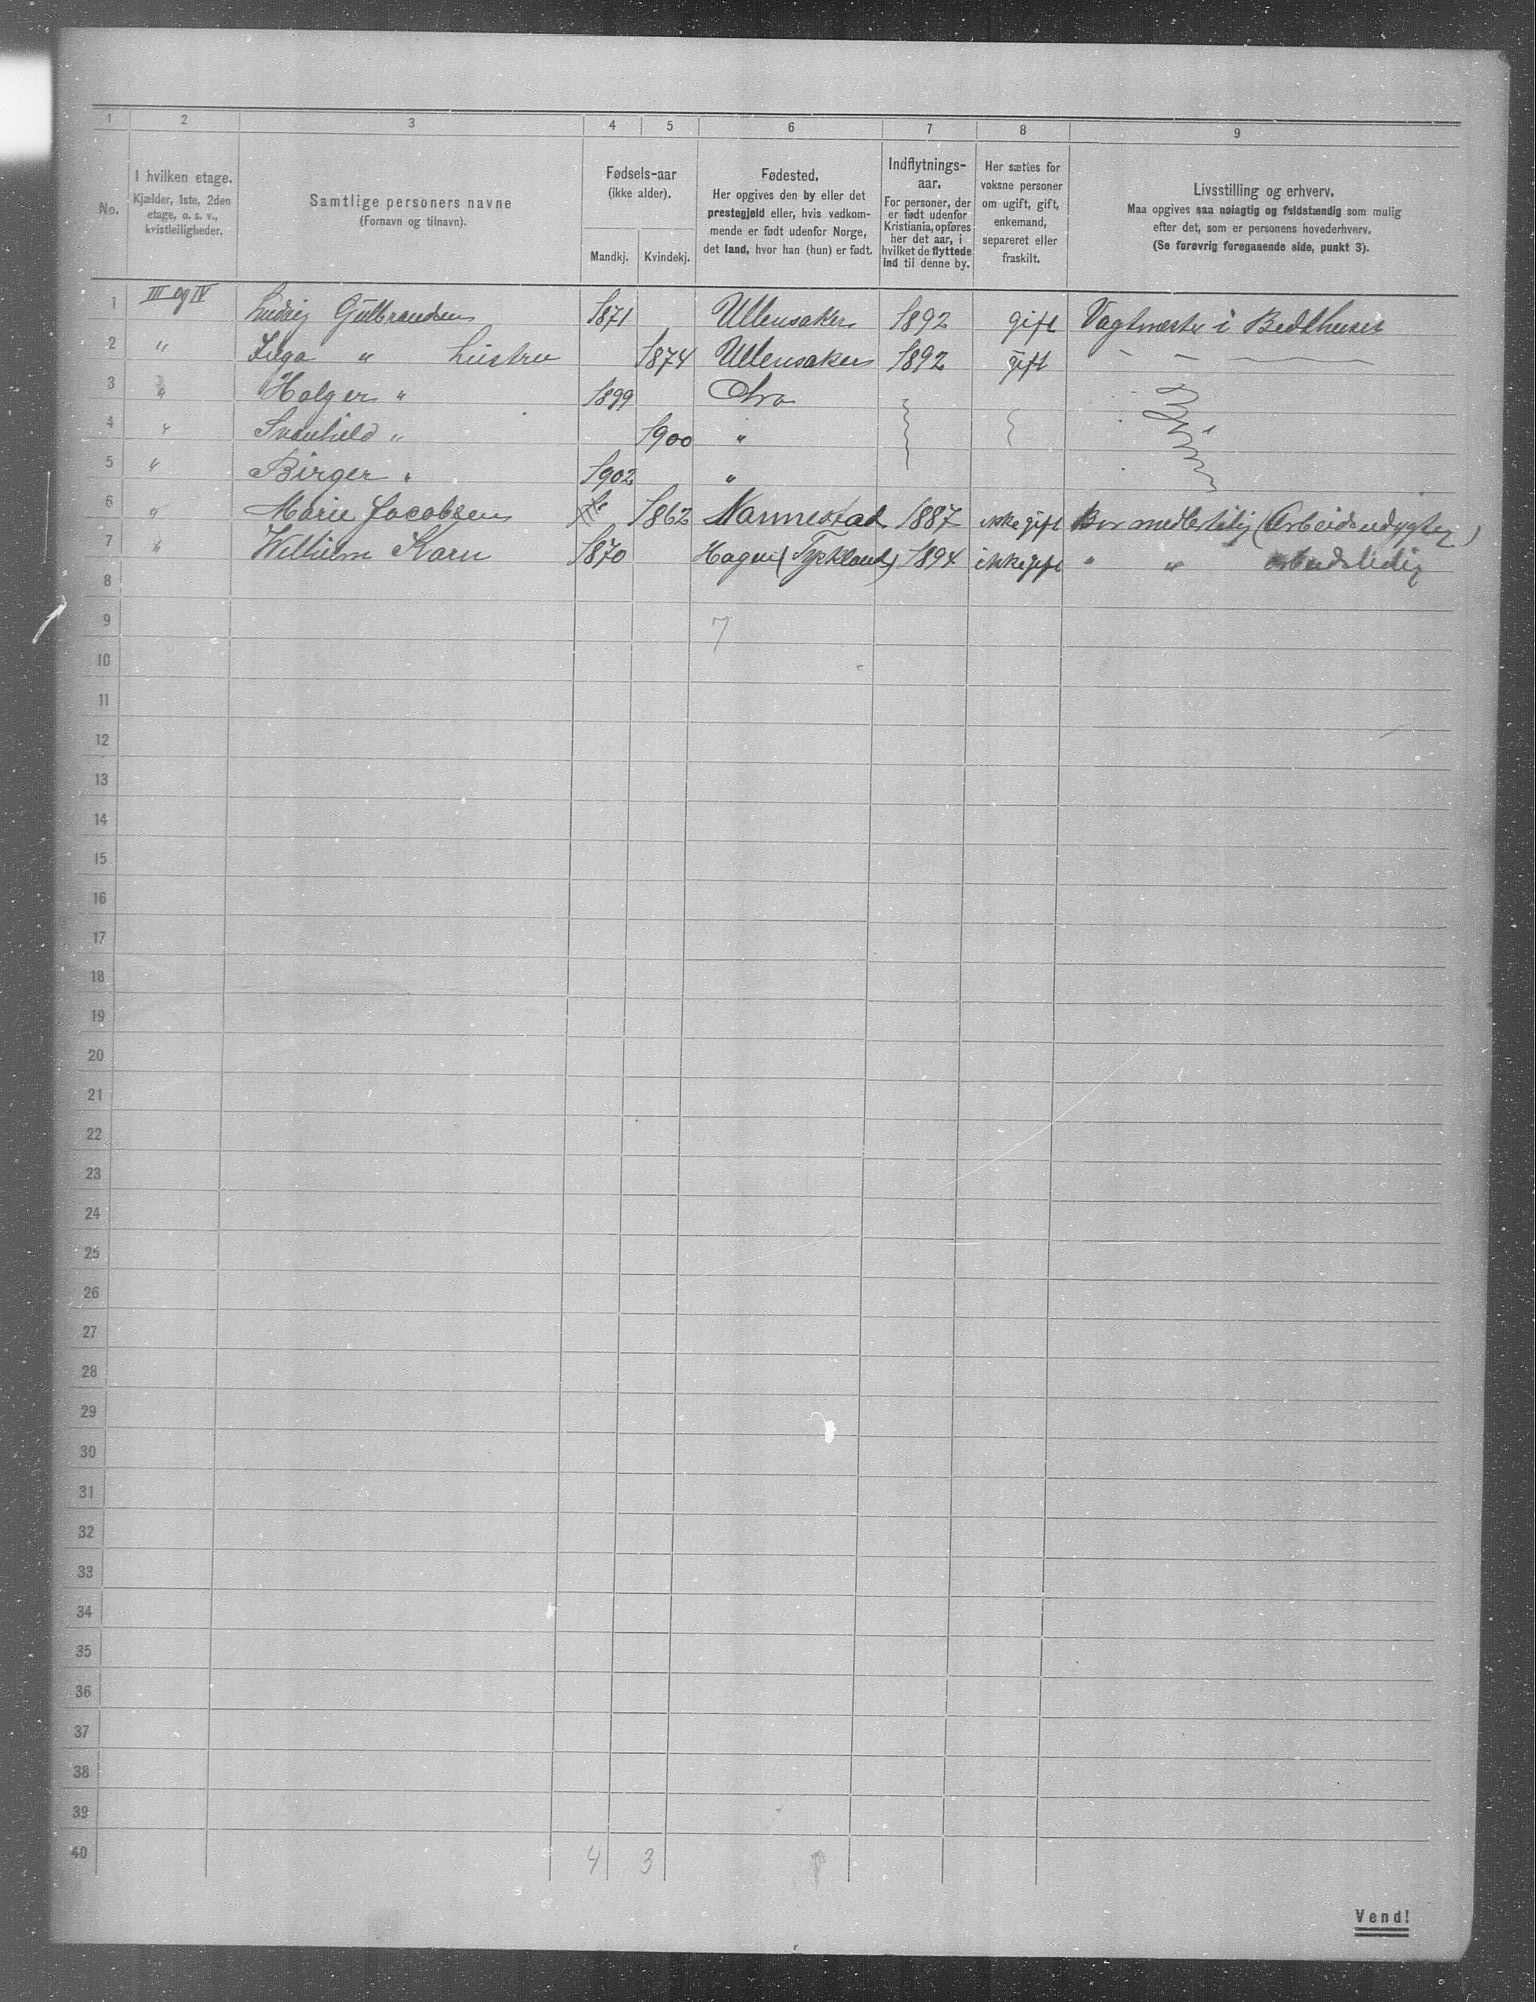 1 2 3 4 5 6 7 8 9
No.
I hvilken etage.
Kjælder, 1ste, 2den
etage, o. s. v.,
kvistleiligheder.
Samtlige personers navne
(Fornavn og tilnavn).
Fødsels-aar
(ikke alder).
Mandkj. Kvindekj.
Fødested.
Her opgives den by eller det
prestegjeld eller, hvis vedkom-
mende er født udenfor Norge,
det land, hvor han (hun) er født.
Indflytnings-
aar.
For personer, der
er født udenfor
Kristiania, opføres
her det aar, i
hvilket de flyttede
ind til denne by.
Her sættes for
voksne personer
om ugift, gift,
enkemand,
separeret eller
fraskilt.
Livsstilling og erhverv.
Maa opgives saa nøiagtig og fuldstændig som mulig
efter det, som er personens hovederhverv.
(Se forøvrig foregaaende side, punkt 3).
1 III og IV Ludvig Gulbrandsen 1871 Ullensaker 1892 gift Vagtmester i
2 " " Hustru 1874 Ullensaker 1892 gift
3 " Holger " 1899 Kra
4 " Svanhild " 1900 "
5 " Birger " 1902 "
6 " Marie Jacobsen 1862 Nannestad 1887 ikke gift
7 " William Karn 1870 (Tyskland) 1894 ikke gift " " arbeidsledig
8
9 7
10
11
12
13
14
15
16
17
18
19
20
21
22
23
24
25
26
27
28
29
30
31
32
33
34
35
36
37
38
39
40 4 3
Vend!